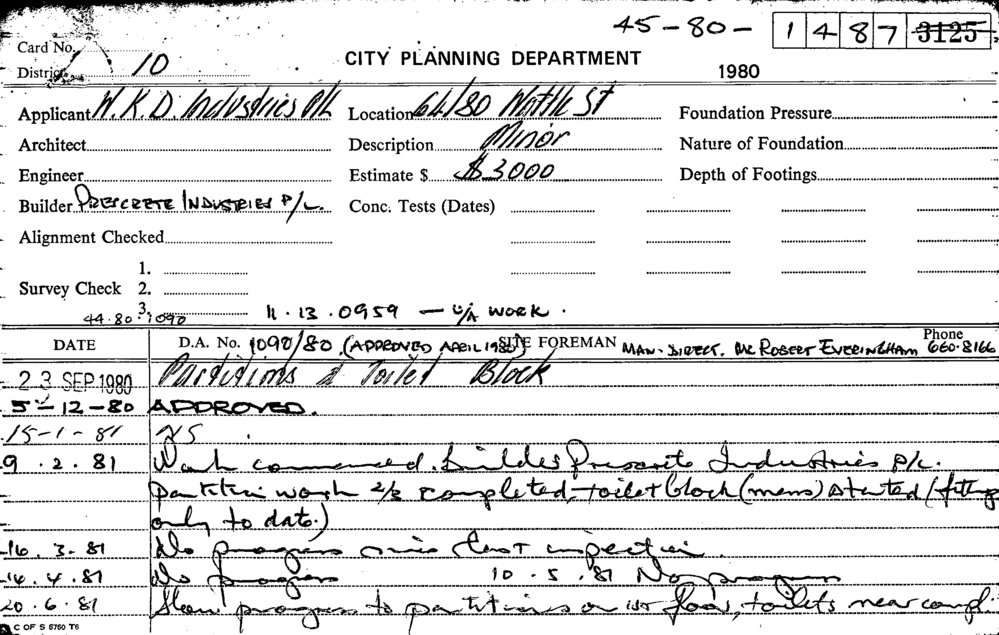 45-80- 1 4 8 7 3125
Card No.
District 10
CITY PLANNING DEPARTMENT
1980
Applicant W.K.D. Industries P/L Location 64/80 Wattle St Foundation Pressure
Architect Description Minor Nature of Foundation
Engineer Estimate $ $3000 Depth of Footings
Builder PRESCRETE INDUSTRIES P/L. Conc. Tests (Dates)
Alignment Checked
1.
Survey Check 2.
3.
44.80.1090 11.13.0959 — U/A WORK.
DATE D.A. No. 1090/80 (APPROVED APRIL 1980) SITE FOREMAN MAN. DIRECT. MR ROBERT EVERINGHAM Phone 660.8166
23 SEP 1980 Partitions & Toilet Block
5-12-80 APPROVED.
15-1-81 NS.
9.2.81 Work commenced. builder Prescrete Industries P/L.
partition work 2/3 completed, toilet block (mens) started (fitting
only to date.)
16.3.81 No progress since last inspection.
14.4.81 No progress 10.5.81 No progress
20.6.81 Slow progress to partitions on 1st floor, toilets near compl.
C OF S 5750 T6